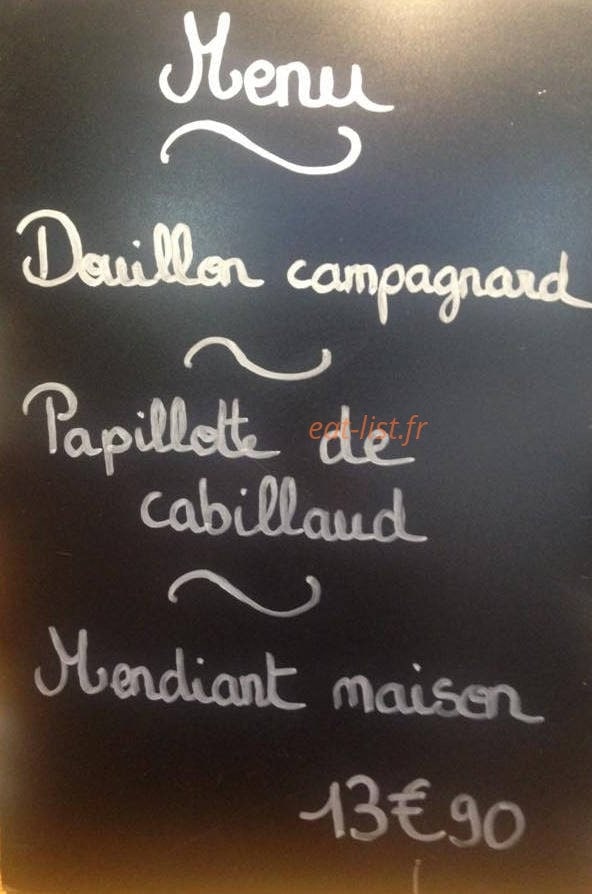 Menu
Douillon campagnard
Papillotte de
eat-list.fr
cabillaud
Mendiant maison
13€90